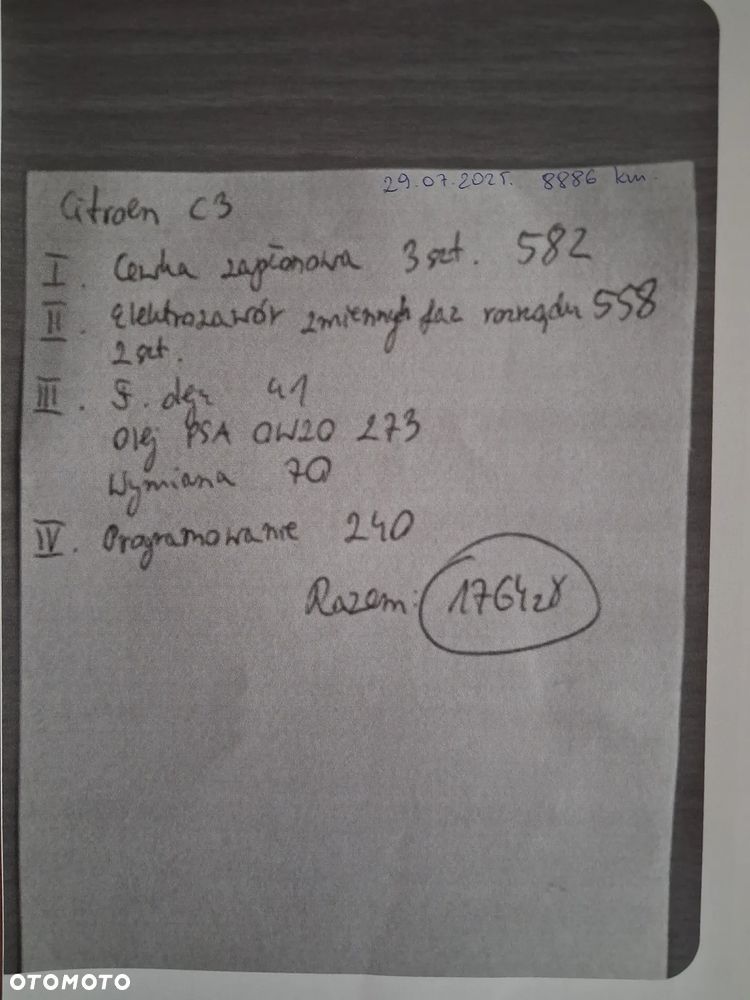 29.07.2025r. 8886 km.
Citroen C3
I. Cewka zapłonowa 3 szt. 582
II. Elektrozawór zmiennych faz rozrządu 558
2 szt.
III. F. oleju 41
Olej PSA 0W20 273
Wymiana 70
IV. Programowanie 240
Razem: 1764 zł
OTOMOTO